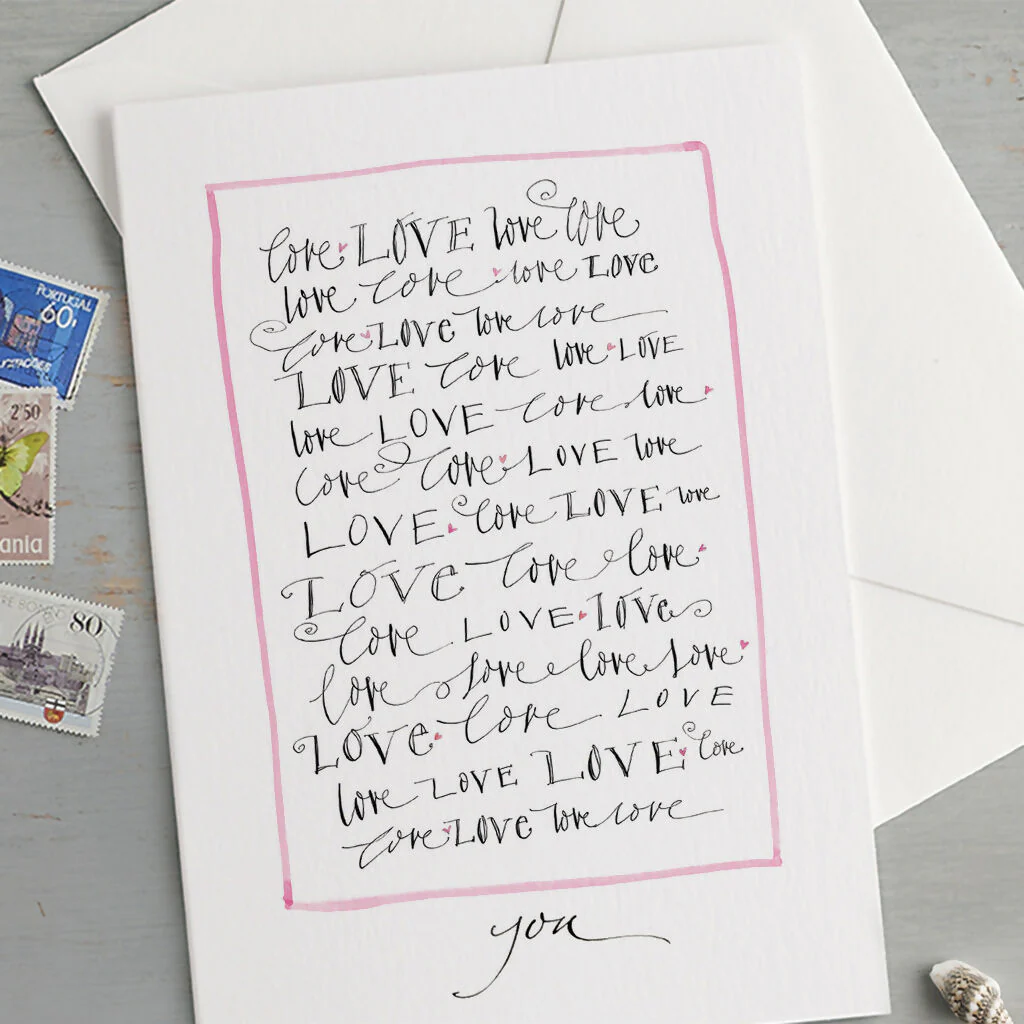 love LOVE love love
love love love LOVE
love LOVE love love
LOVE love love LOVE
love LOVE love love
love love LOVE love
LOVE love LOVE love
LOVE love love
love LOVE LOVE
love love love love
LOVE love LOVE
love LOVE LOVE love
love LOVE love love
you
PORTUGAL
60
2'50
ania
80